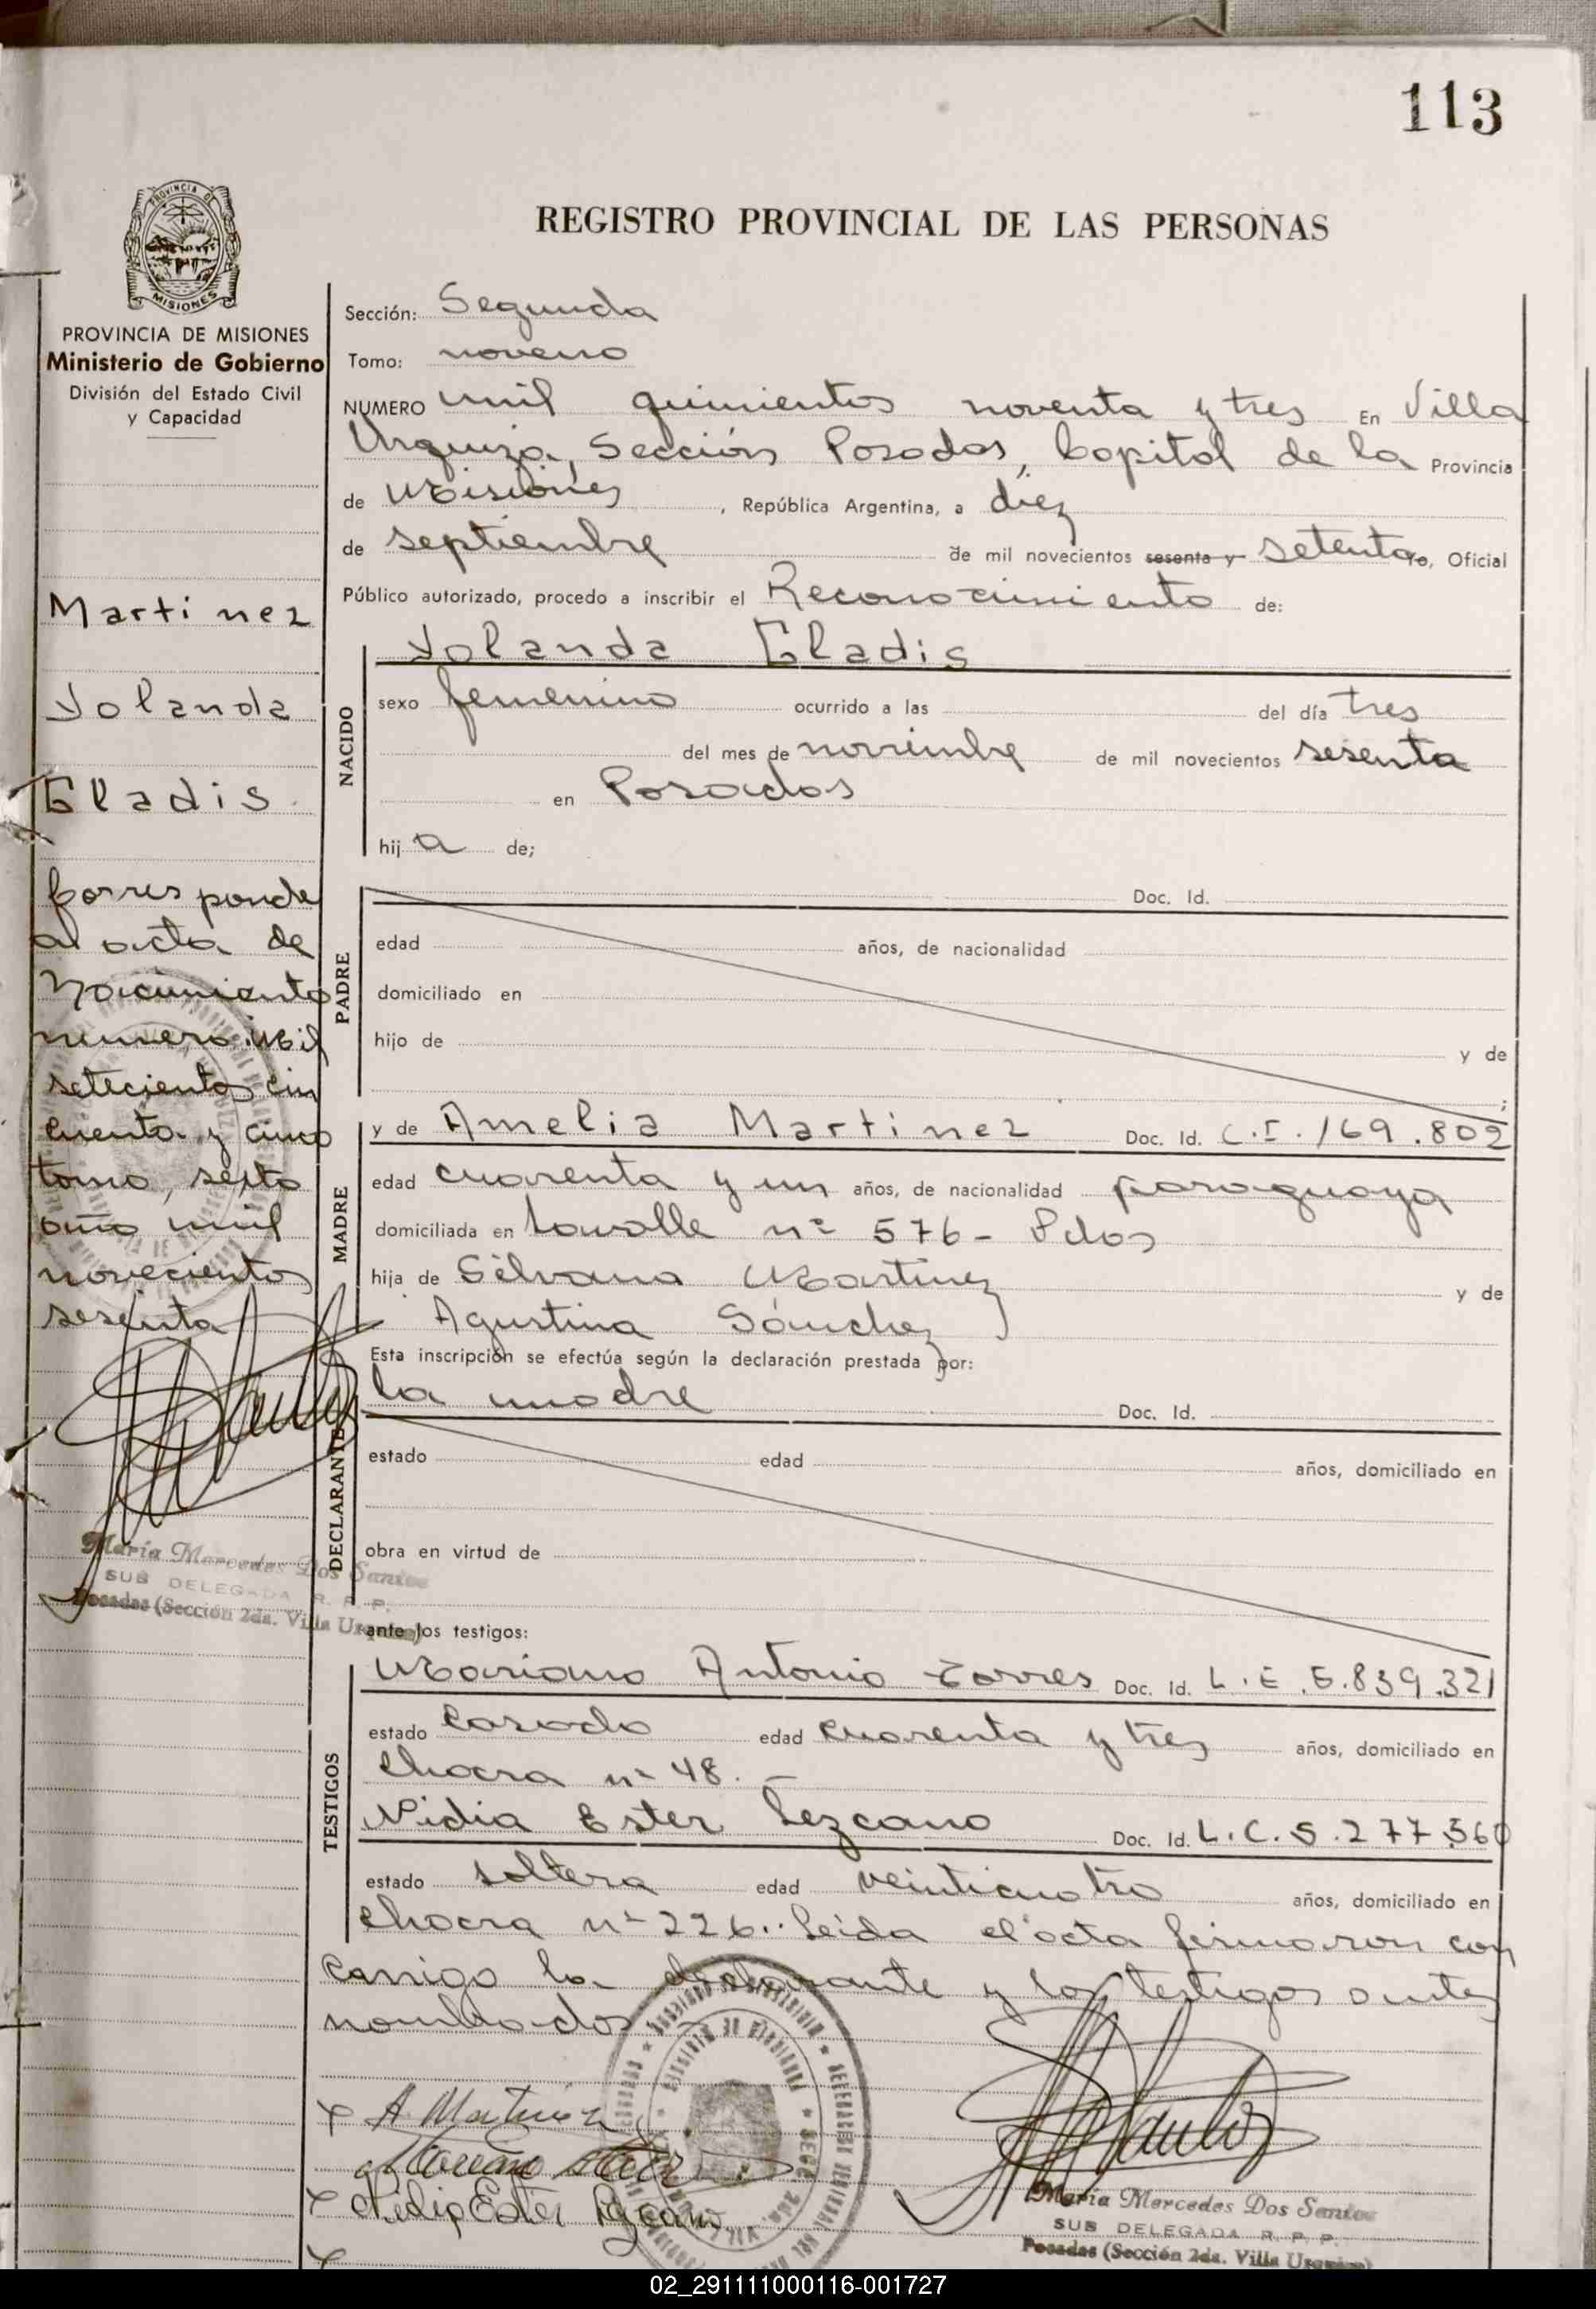 113
REGISTRO PROVINCIAL DE LAS PERSONAS
PROVINCIA DE MISIONES
MISIONES
PROVINCIA DE MISIONES
Ministerio de Gobierno
División del Estado Civil
y Capacidad
Martinez
Yolanda
Gladis
Corresponde
al acta de
Nacimiento
numero Mil
setecientos cin
cuenta y cinco
tomo, sexto
año mil
novecientos
sesenta
María Mercedes Dos Santos
SUB DELEGADA R. P. P.
Posadas (Sección 2da. Villa Urquiza)
Sección: Segunda
Tomo: noveno
NUMERO mil quinientos noventa y tres En Villa
Urquiza, Sección Posadas, Capital de la Provincia
de Misiones, República Argentina, a diez
de septiembre de mil novecientos sesenta y setenta Yo, Oficial
Público autorizado, procedo a inscribir el Reconocimiento de:
NACIDO
Yolanda Gladis
sexo femenino ocurrido a las del día tres
del mes de noviembre de mil novecientos sesenta
en Posadas
hij a de;
PADRE
Doc. Id.
edad años, de nacionalidad
domiciliado en
hijo de y de
;
MADRE
y de Amelia Martinez Doc. Id. C.I. 169.802
edad cuarenta y un años, de nacionalidad paraguaya
domiciliada en Lavalle nº 576 - Pdas
hija de Silvano Martinez y de
Agustina Sánchez
Esta inscripción se efectúa según la declaración prestada por:
DECLARANTE
la madre Doc. Id.
estado edad años, domiciliado en
obra en virtud de
ante los testigos:
TESTIGOS
Mariano Antonio Torres Doc. Id. L.E. 5.839.321
estado Casado edad cuarenta y tres años, domiciliado en
Chacra nº 48. -
Nidia Ester Lezcano Doc. Id. L.C. 5.277.360
estado soltera edad veinticuatro años, domiciliado en
Chacra nº 226.. Leida el acta firmaron con
conmigo la declarante y los testigos antes
nombrados
A. Martinez
Nidia Ester Lezcano
María Mercedes Dos Santos
SUB DELEGADA R. P. P.
Posadas (Sección 2da. Villa Urquiza)
02_291111000116-001727